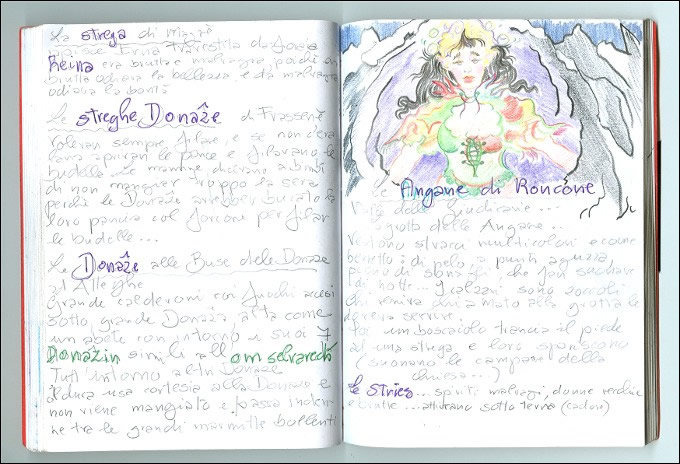 La strega di
Reina era brutta e malvagia, poichè
brutta odiava la bellezza e da malvagia
odiava la bontà
Le streghe Donaže di Frassenè
volevan sempre filare, e se non c'era
lana aprivan le pance e filavano le
budelle. Le mamme dicevano ai bimbi
di non mangiar troppo la sera
perchè le Donaze avrebber bucato la
loro pancia col forcone per filar
le budelle...
Le Donaže alle Buse dele Donaze
ad Alleghe
Grandi calderoni coi fuochi accesi
sotto grande Donaza alta come
un abete con intorno i suoi 7
Donazin simili all'om selvarech
Tutt'intorno altre Donaze
usa cortesia alla Donaza e
non viene mangiato e passa indem
ne tra le grandi marmitte bollenti
Le Angane di Roncone
Valle delle Giudicarie...
grotta delle Angane..
Vestono stracci multicolori e come
berretto di pelo a punta aguzza
pieno di sonagli che fan suonare
di notte... I calzari sono zoccoli
Chi veniva alla grotta le
doveva servire.
Poi un boscaiolo trancia il piede
ad una strega e loro spariscono
(suonano le campane della
chiesa...)
le Stries... spiriti malvagi, donne vecchie
e brutte... abitavano sotto terra (Cadore)